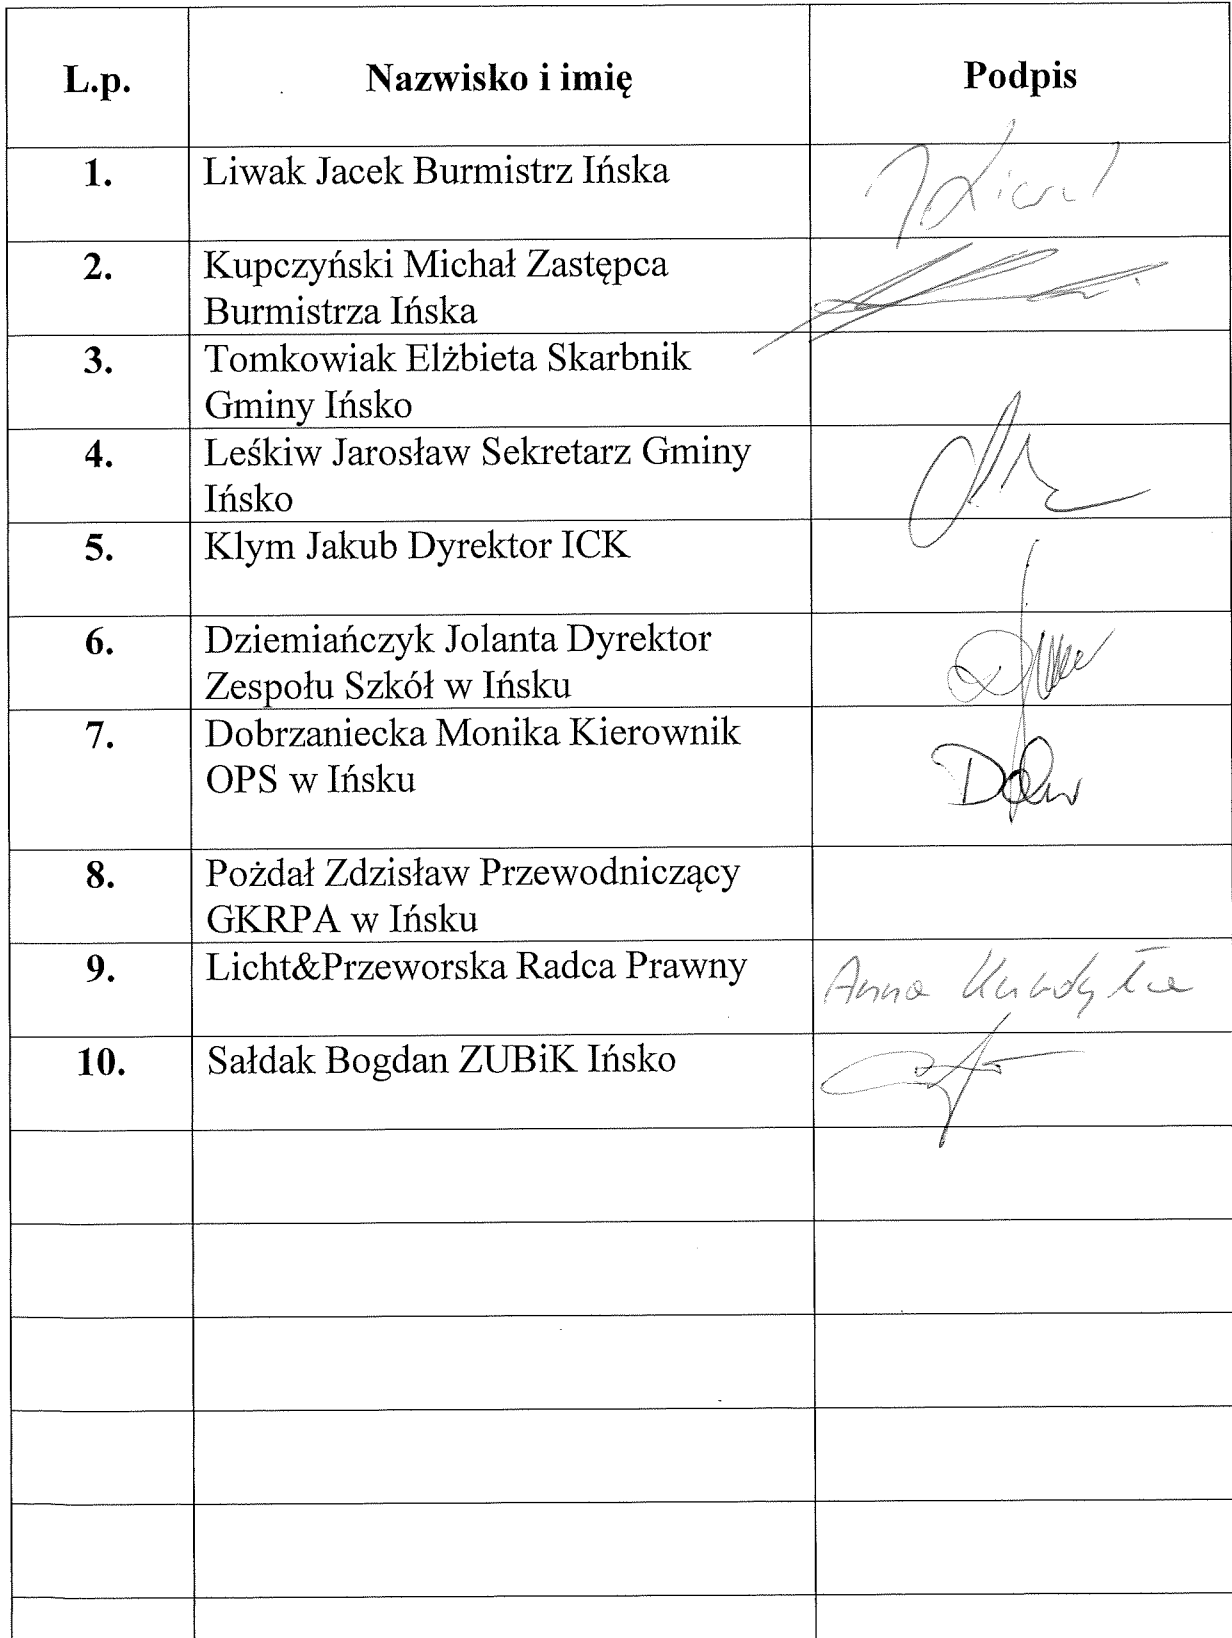 L.p. Nazwisko i imię Podpis
1. Liwak Jacek Burmistrz Ińska
2. Kupczyński Michał Zastępca
Burmistrza Ińska
3. Tomkowiak Elżbieta Skarbnik
Gminy Ińsko
4. Leśkiw Jarosław Sekretarz Gminy
Ińsko
5. Klym Jakub Dyrektor ICK
6. Dziemiańczyk Jolanta Dyrektor
Zespołu Szkół w Ińsku
7. Dobrzaniecka Monika Kierownik
OPS w Ińsku
8. Pożdał Zdzisław Przewodniczący
GKRPA w Ińsku
9. Licht&Przeworska Radca Prawny Anna
10. Sałdak Bogdan ZUBiK Ińsko